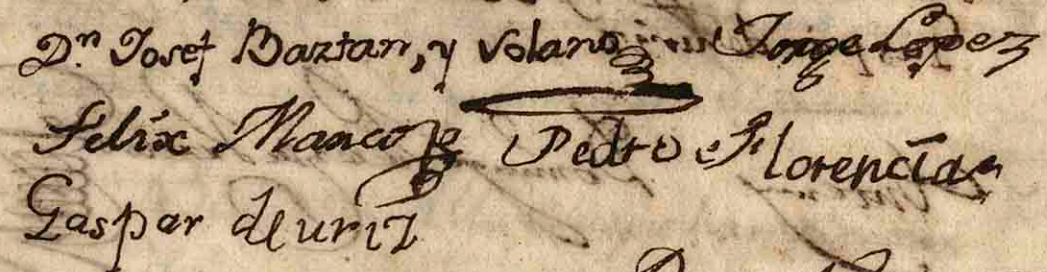 Dn. Josef Baztan, y Volano Jorge Lopez
Felix Manco Pedro e Florencia
Gaspar de uriz